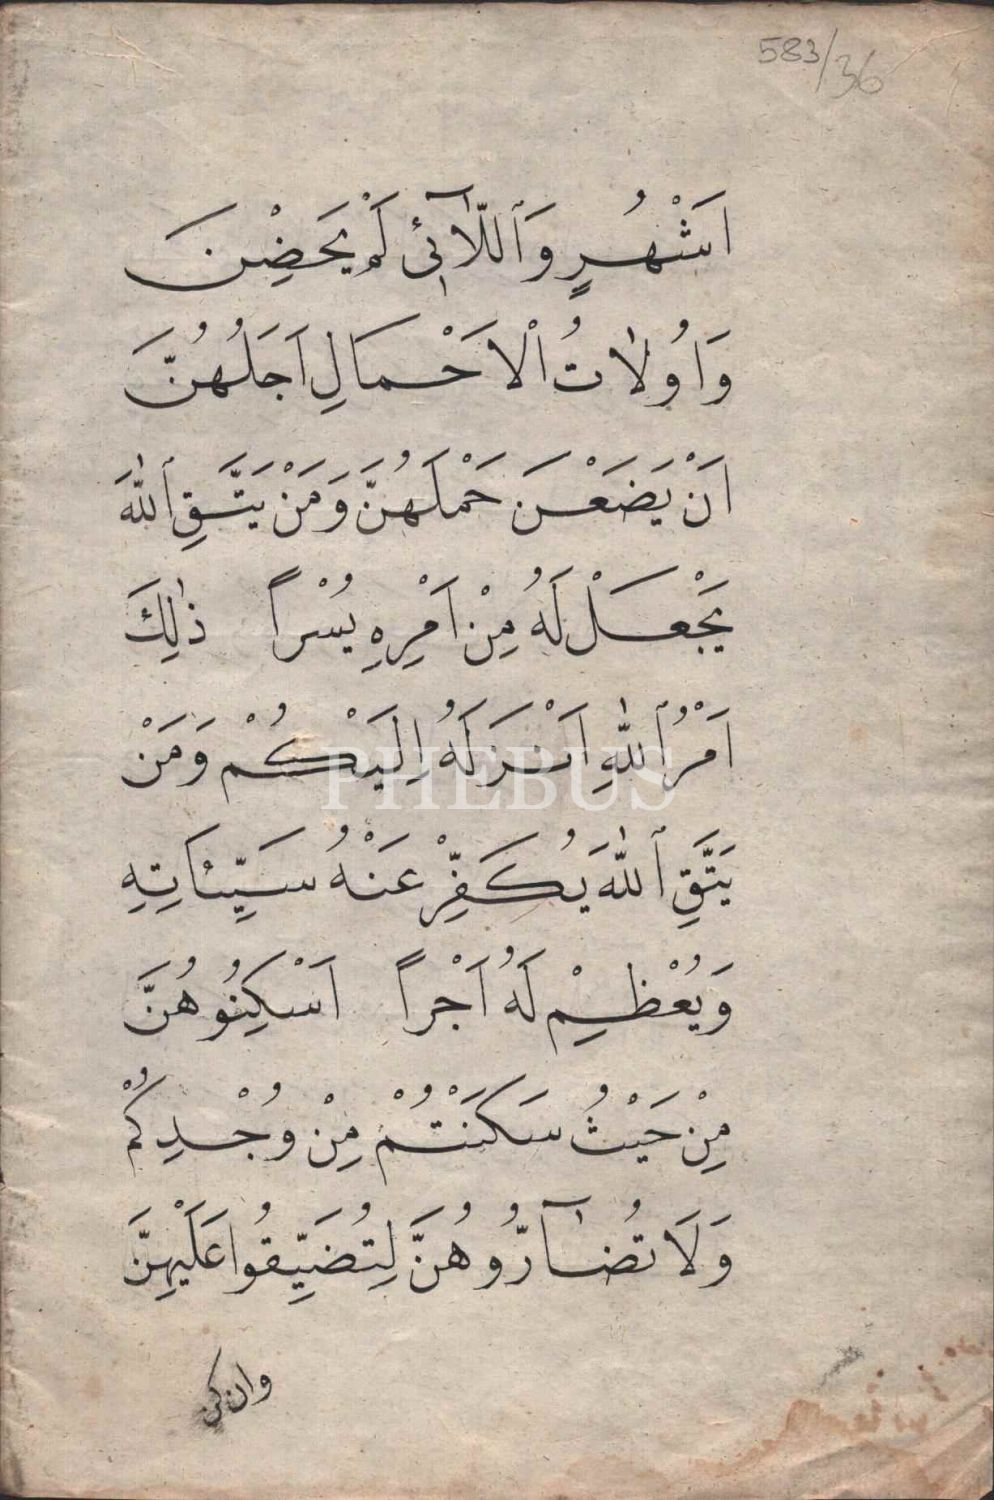 583/36
اَشْهُرٍ وَٱللّٰٓائ۪ لَمْ يَحَضِْنَ
وَاُو۬لَاتُ الْاَحْمَالِ اَجَلُهُنَّ
اَنْ يَضَعْنَ حَمْلَهُنَّ وَمَنْ يَتَّقِ ٱللّٰهَ
يَجْعَلْ لَهُ مِنْ اَمْرِهِ يُسْراً ذٰلِكَ
اَمْرُ ٱللّٰهِ اَنْزَلَهُ اِلَيْكُمْ وَمَنْ
يَتَّقِ ٱللّٰهَ يُكَفِّرْ عَنْهُ سَيِّئَاتِهِ
وَيُعْظِمْ لَهُ اَجْراً اَسْكِنُوهُنَّ
مِنْ حَيْثُ سَكَنْتُمْ مِنْ وُجْدِكُمْ
وَلَا تُضَٓارُّوهُنَّ لِتُضَيِّقُوا عَلَيْهِنَّ
وان كن
PHEBUS